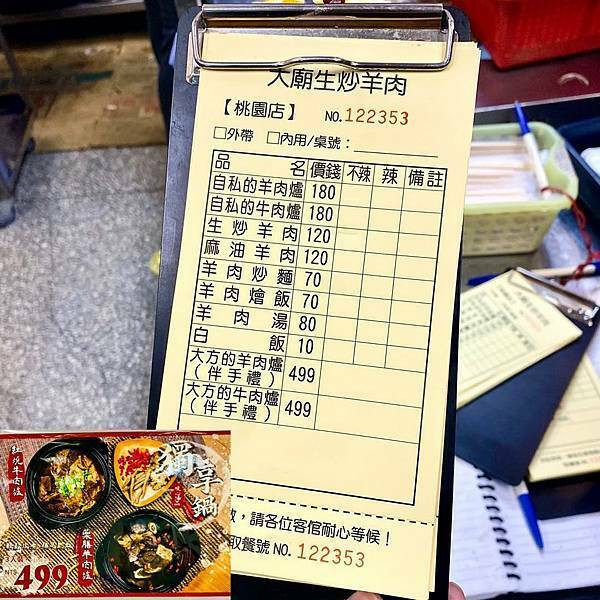 大廟生炒羊肉
【桃園店】 NO.122353
□外帶 □內用/桌號:
品名 價錢 不辣 辣 備註
自私的羊肉爐 180
自私的牛肉爐 180
生炒羊肉 120
麻油羊肉 120
羊肉炒麵 70
羊肉燴飯 70
羊肉湯 80
白飯 10
大方的羊肉爐
(伴手禮) 499
大方的牛肉爐
(伴手禮) 499
，請各位客倌耐心等候！
取餐號 NO. 122353
獨享鍋
紅燒牛肉爐
499